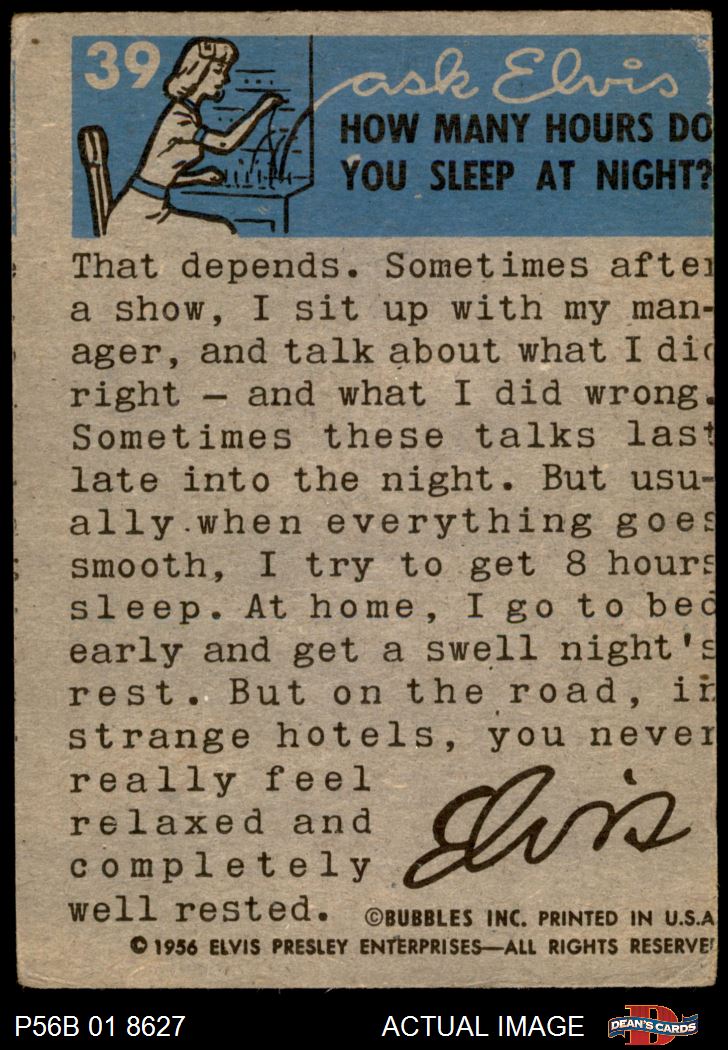 39
ask Elvis
HOW MANY HOURS DO
YOU SLEEP AT NIGHT?
That depends. Sometimes after
a show, I sit up with my man-
ager, and talk about what I did
right — and what I did wrong.
Sometimes these talks last
late into the night. But usu-
ally when everything goes
smooth, I try to get 8 hours
sleep. At home, I go to bed
early and get a swell night's
rest. But on the road, in
strange hotels, you never
really feel
relaxed and
completely
well rested.
Elvis
©BUBBLES INC. PRINTED IN U.S.A
© 1956 ELVIS PRESLEY ENTERPRISES—ALL RIGHTS RESERVE
P56B 01 8627
ACTUAL IMAGE
D
DEAN'S CARDS